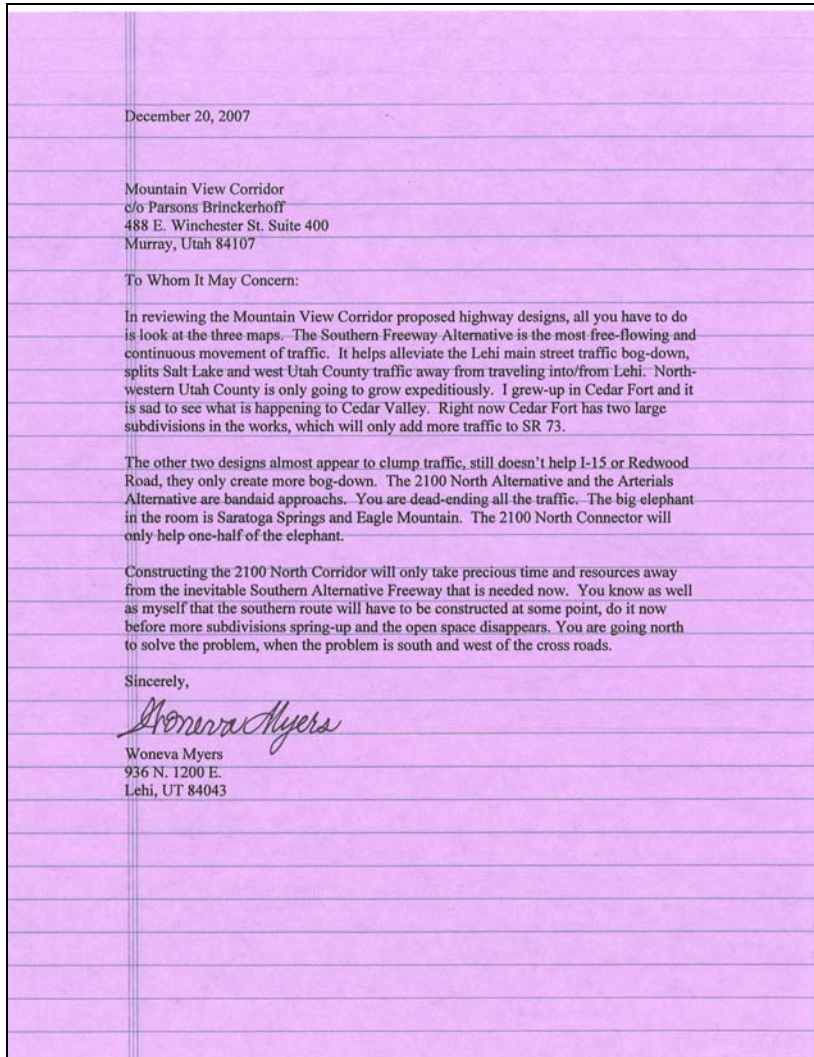 December 20, 2007
Mountain View Corridor
c/o Parsons Brinckerhoff
488 E. Winchester St. Suite 400
Murray, Utah 84107
To Whom It May Concern:
In reviewing the Mountain View Corridor proposed highway designs, all you have to do
is look at the three maps.  The Southern Freeway Alternative is the most free-flowing and
continuous movement of traffic.  It helps alleviate the Lehi main street traffic bog-down,
splits Salt Lake and west Utah County traffic away from traveling into/from Lehi.  North-
western Utah County is only going to grow expeditiously.  I grew-up in Cedar Fort and it
is sad to see what is happening to Cedar Valley.  Right now Cedar Fort has two large
subdivisions in the works, which will only add more traffic to SR 73.
The other two designs almost appear to clump traffic, still doesn't help I-15 or Redwood
Road, they only create more bog-down.  The 2100 North Alternative and the Arterials
Alternative are bandaid approachs.  You are dead-ending all the traffic.  The big elephant
in the room is Saratoga Springs and Eagle Mountain.  The 2100 North Connector will
only help one-half of the elephant.
Constructing the 2100 North Corridor will only take precious time and resources away
from the inevitable Southern Alternative Freeway that is needed now.  You know as well
as myself that the southern route will have to be constructed at some point, do it now
before more subdivisions spring-up and the open space disappears. You are going north
to solve the problem, when the problem is south and west of the cross roads.
Sincerely,
Woneva Myers
Woneva Myers
936 N. 1200 E.
Lehi, UT 84043